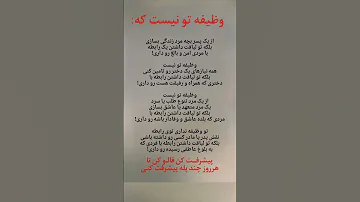 وظیفه تو نیست که:
از یک پسر بچه مرد زندگی بسازی
بلکه تو لیاقت داشتن یک رابطه
با مردی امن و بالغ رو داری!
وظیفه تو نیست
همه نیازهای یک دختر رو تامین کنی
بلکه تو لیاقت داشتن رابطه با
دختری که همراه و رفیقت هست رو داری!
وظیفه تو نیست
از یک مرد تنوع طلب یا سرد
یک مرد متعهد یا عاشق بسازی
بلکه تو لیاقت داشتن رابطه با
مردی که بلده عاشق و وفادار باشه رو داری!
تو وظیفه نداری توی رابطه
نقش پدر یا مادر کسی رو داشته باشی
بلکه تو لیاقت داشتن رابطه با فردی که
به بلوغ عاطفی رسیده رو داری!
پیشرفت کن فالو کن تا
هرروز چند پله پیشرفت کنی